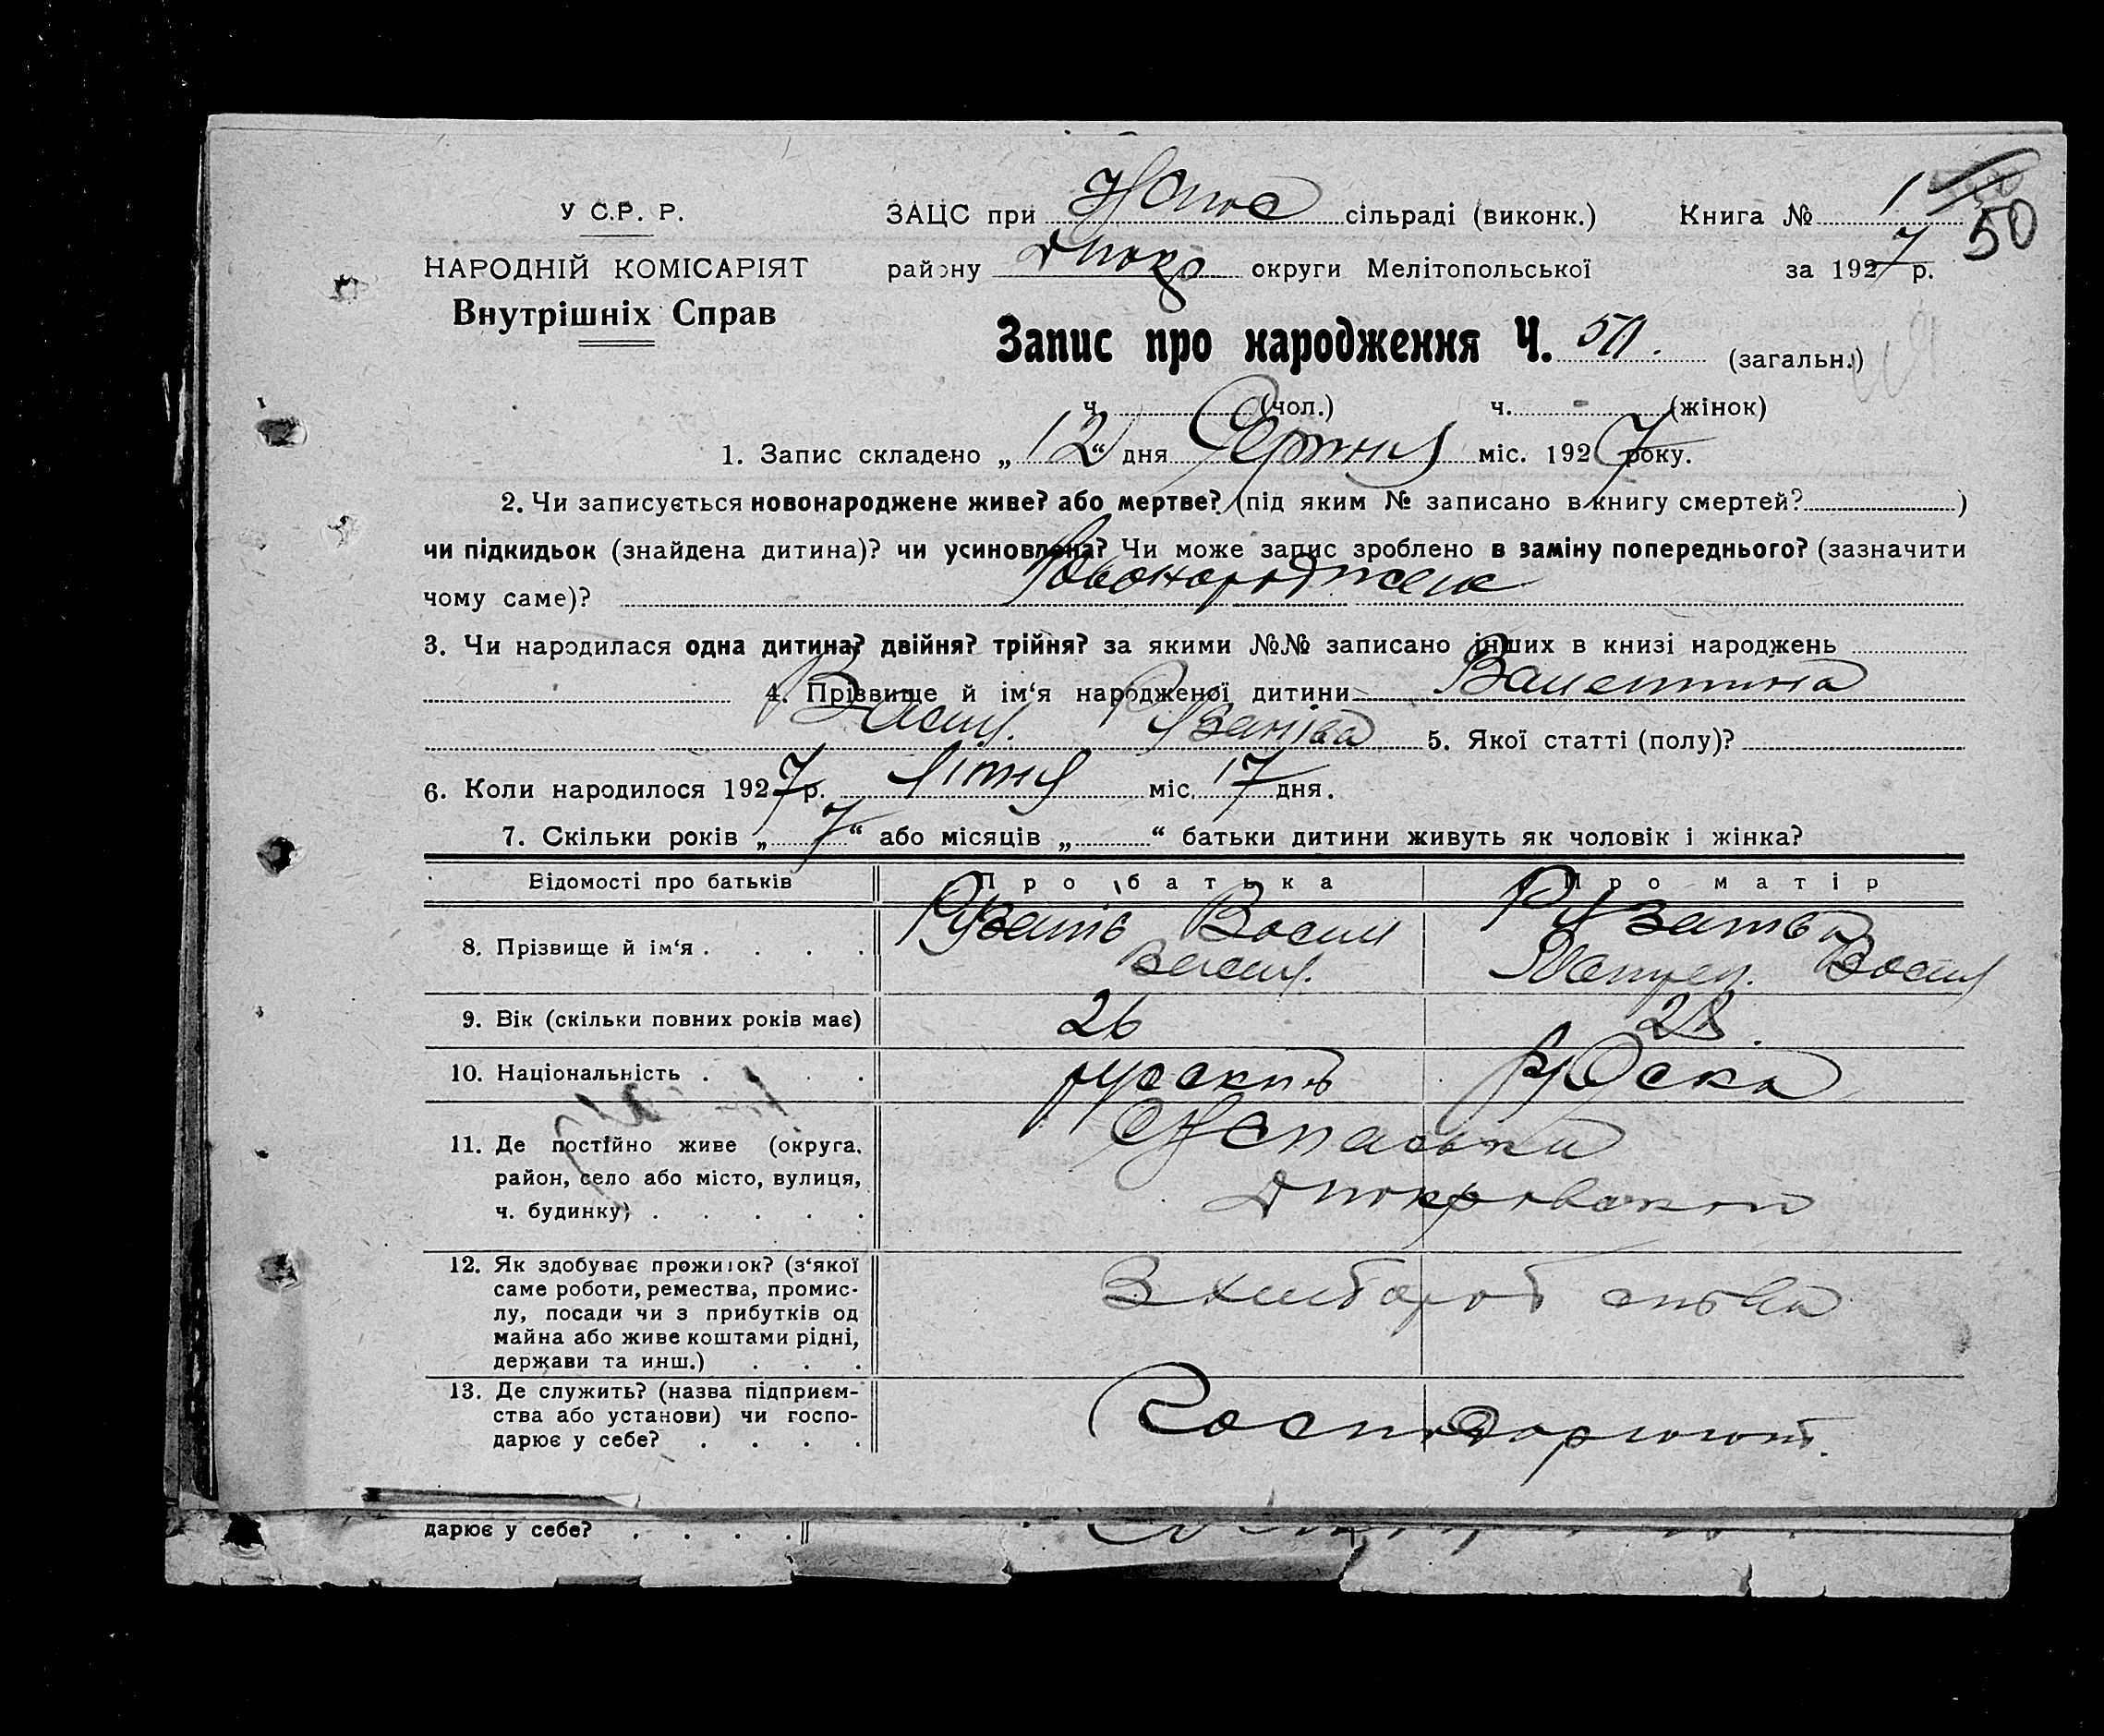 У С.Р. Р.
НАРОДНІЙ КОМІСАРІЯТ
Внутрішніх Справ
ЗАЦС при сільраді (виконк.) Книга № 1
50
району округи Мелітопольської за 1927 р.
Запис про народження Ч. 50. (загальн.)
ч. (чол.) ч. (жінок)
1. Запис складено „12“ дня Серпня міс. 1927 року.
2. Чи записується новонароджене живе? або мертве? (під яким № записано в книгу смертей? )
чи підкидьок (знайдена дитина)? чи усиновлена? Чи може запис зроблено в заміну попереднього? (зазначити
чому саме)? Новонароджене
3. Чи народилася одна дитина? двійня? трійня? за якими №№ записано інших в книзі народжень
4. Прізвище й ім‘я народженої дитини Валентина
Васил. 5. Якої статті (полу)?
6. Коли народилося 1927 р. міс. 17 дня.
7. Скільки років „7“ або місяців „ “ батьки дитини живуть як чоловік і жінка?
Відомості про батьків Про батька Про матір
8. Прізвище й ім‘я . . . . Васил
Васил. Васил
9. Вік (скільки повних років має) 26 28.
10. Національність . . . . русский руска
11. Де постійно живе (округа,
район, село або місто, вулиця,
ч. будинку) . . . . .
12. Як здобуває прожиток? (з‘якої
саме роботи, ремества, промис-
лу, посади чи з прибутків од
майна або живе коштами рідні,
держави та инш.) . . .
З хлибороб ства
13. Де служить? (назва підприєм-
ства або установи) чи госпо-
дарює у себе? . . . .
Господарюют.
дарює у себе? . . . .